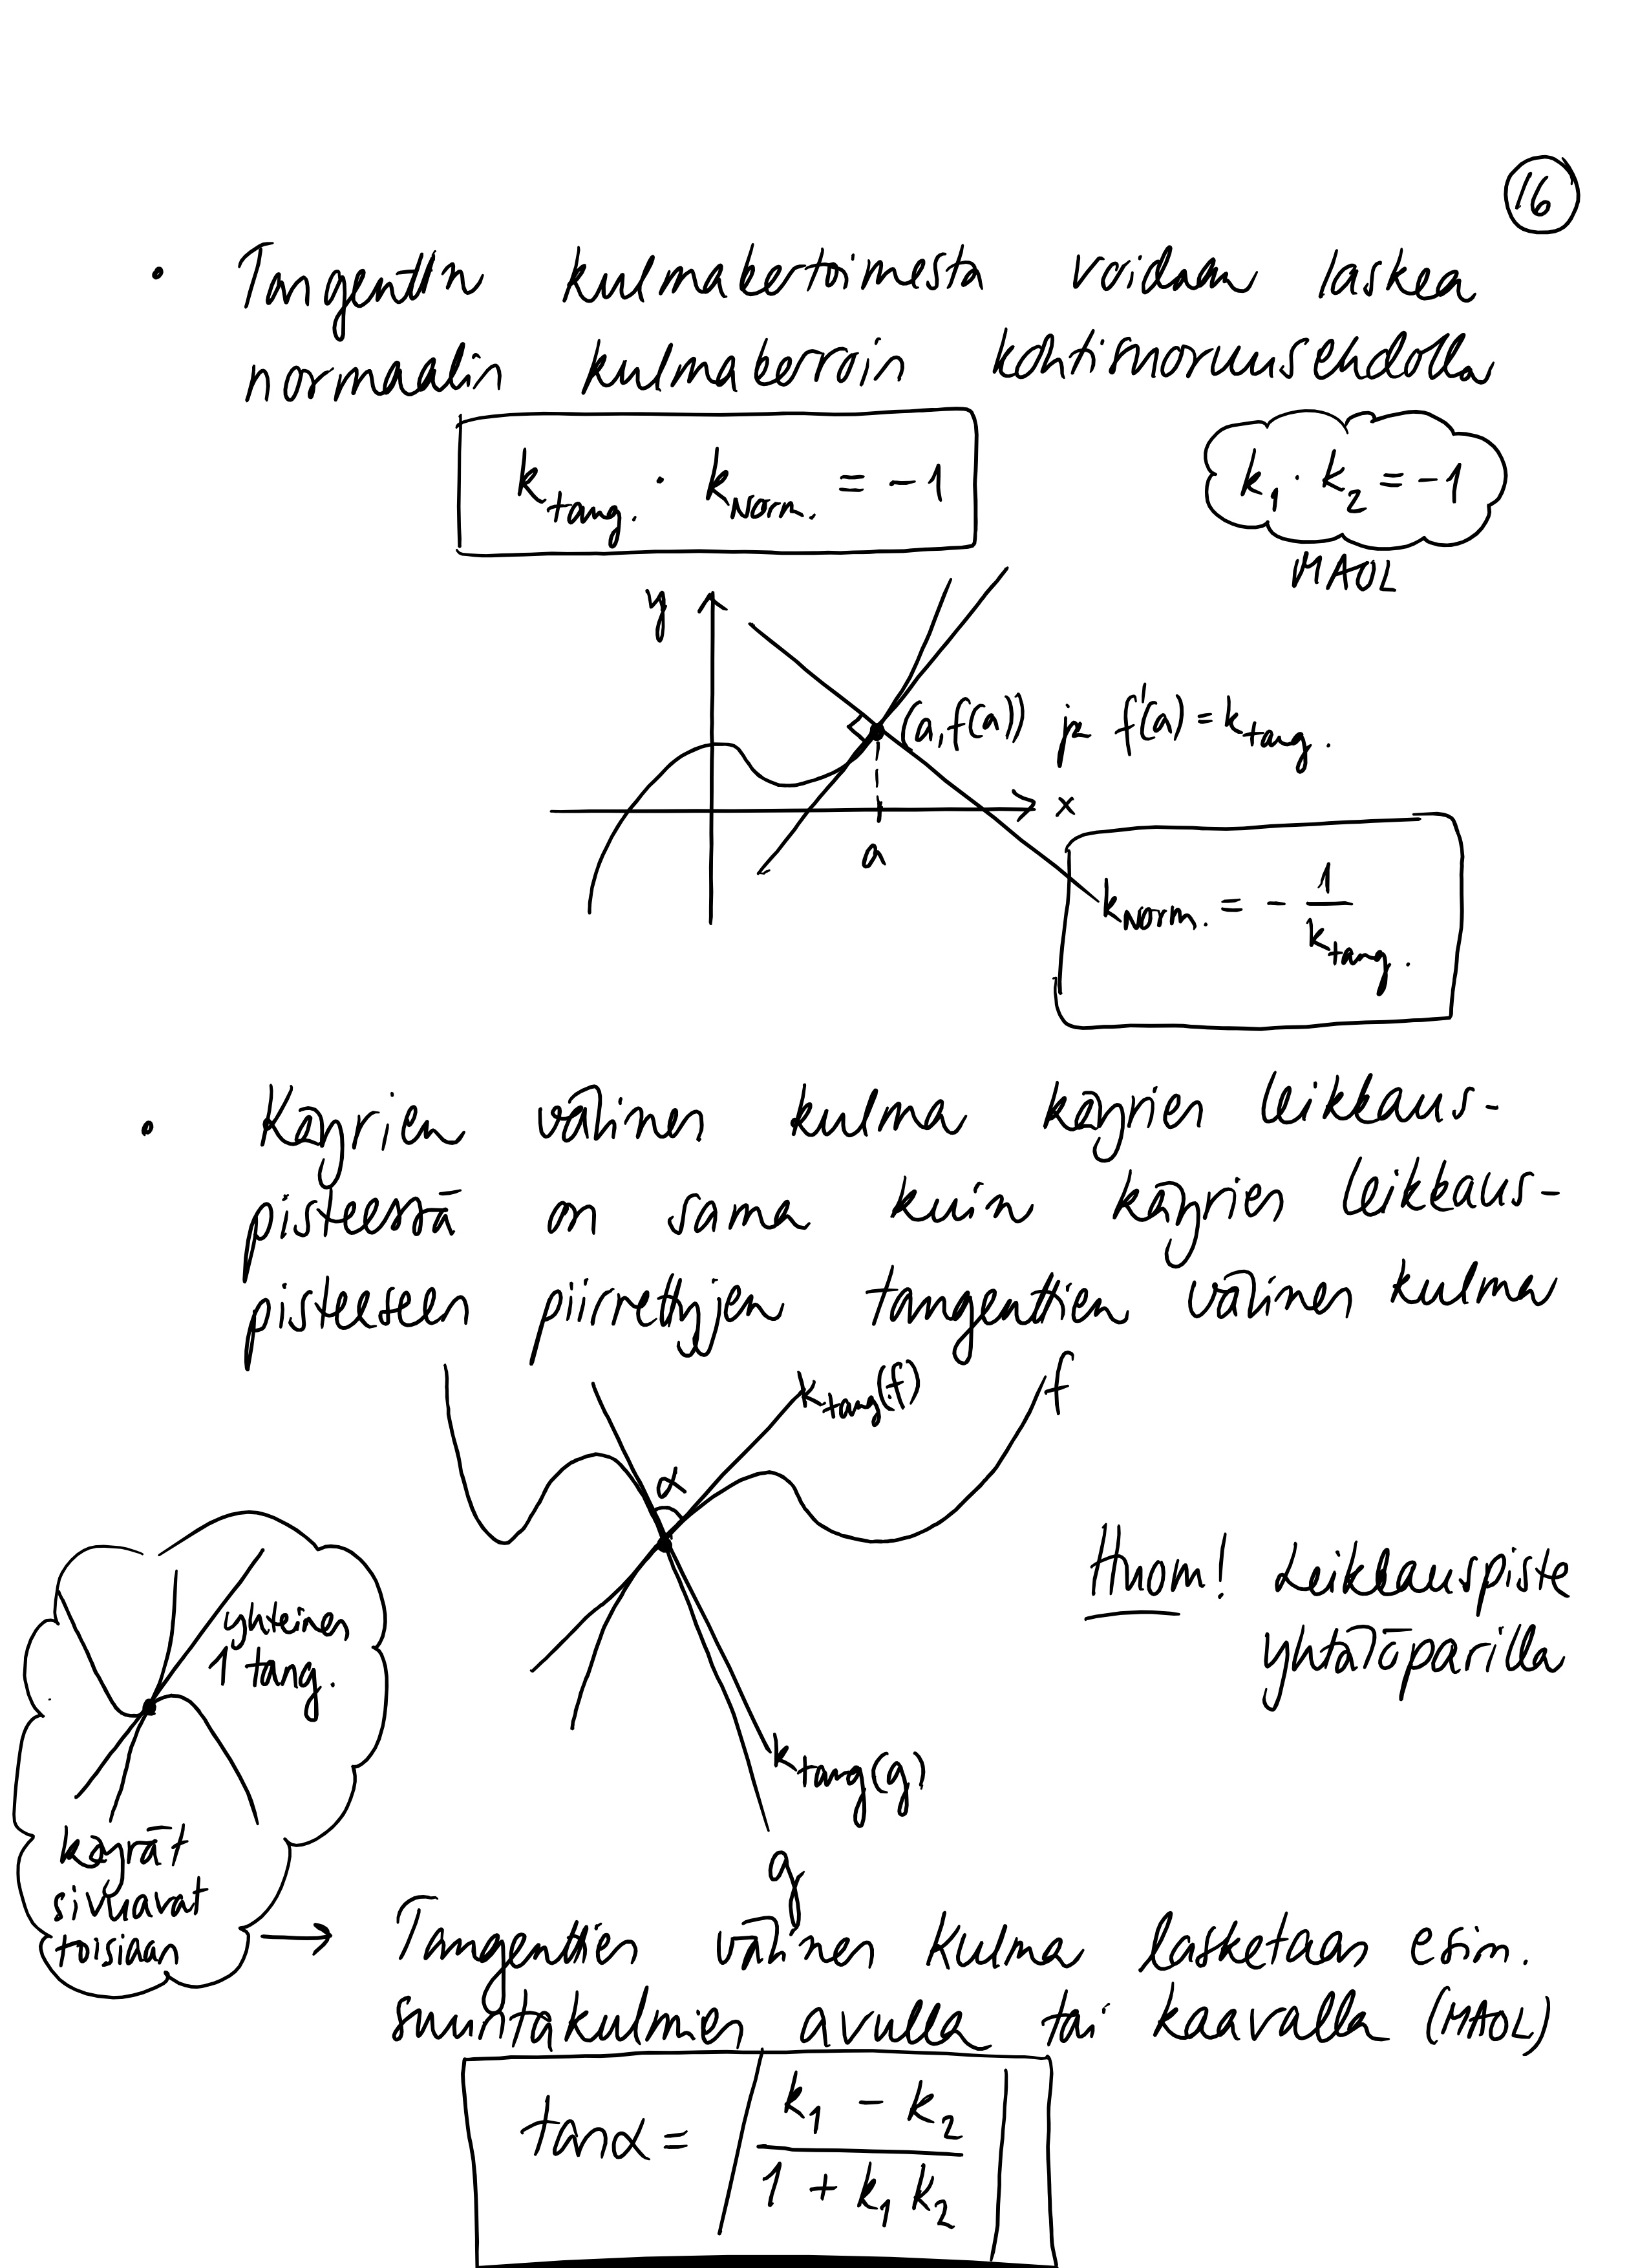 16
• Tangentin kulmakertoimesta voidaan laskea
normaalin kulmakerroin kohtisuoruusehdolla
k_tang. · k_Norm. = -1
k₁ · k₂ = -1
MAOL
y
(a, f(a)) ja f'(a) = k_tang.
x
a
k_Norm. = - 1/k_tang.
• Käyrien välinen kulma käyrien leikkaus-
pisteessä on sama kuin käyrien leikkaus-
pisteeseen piirrettyjen tangenttien välinen kulma
k_tang(f)
f
α
Huom! Leikkauspiste
yhtälöparilla
yhteinen
1 tang.
k_tang(g)
g
käyrät
sivuavat
toisiaan
→ Tangenttien välinen kulma lasketaan esim.
suuntakulmien avulla tai kaavalla (MAOL)
tanα = |(k₁ - k₂)/(1 + k₁k₂)|